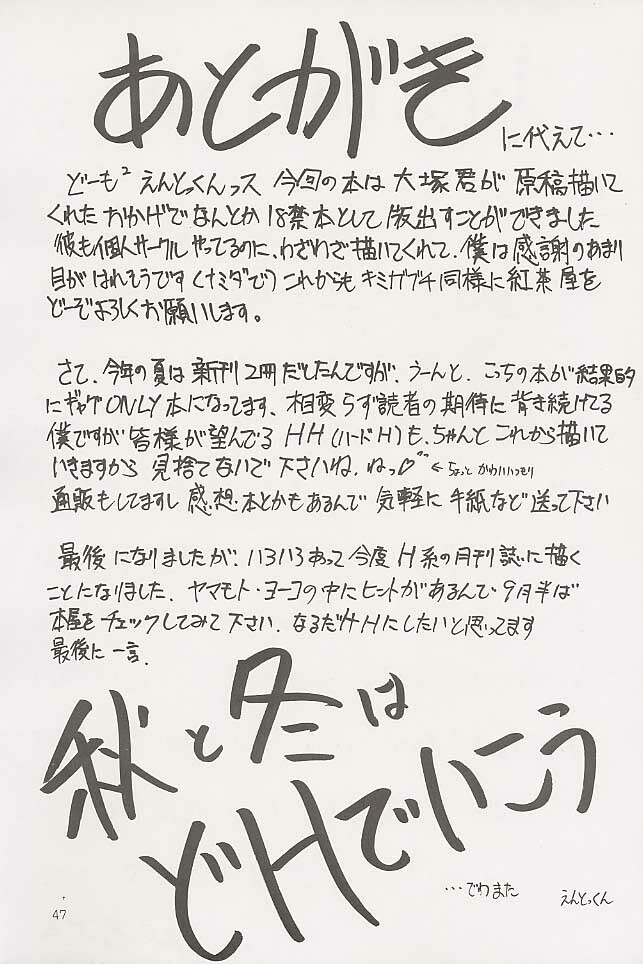 あとがき
に代えて…
どーも²えんとっくんっス 今回の本は 大塚君が 原稿描いて
くれた おかげでなんとか 18禁本として 版出すことができました
彼も個人サークル やってるのに、わざわざ描いてくれて、僕は感謝のあまり
目が はれそうです(ナミダで)これからも キミガブチ同様に 紅茶屋を
どーぞよろしくお願いします。
さて、今年の夏は 新刊2冊だしたんですが、うーんと、こっちの本が結果的
にギャグONLY本になってます、相変らず読者の期待に背き続けてる
僕ですが 皆様が望んでる HH(ハードH)も、ちゃんと これから描いて
いきますから 見捨てないで 下さいね、ねっ♡ ←ちょっと かわいいつもり
通販もしてますし 感想本とかもあるんで 気軽に 手紙など 送って下さい
最後になりましたが、いろいろあって今度 H系の月刊誌に描く
ことになりました、ヤマモト・ヨーコの中にヒントがあるんで 9月半ば
本屋をチェックしてみて下さい、なるだけHにしたいと思ってます
最後に一言、
秋と冬は
どHでいこう
…でわまた えんとっくん
47